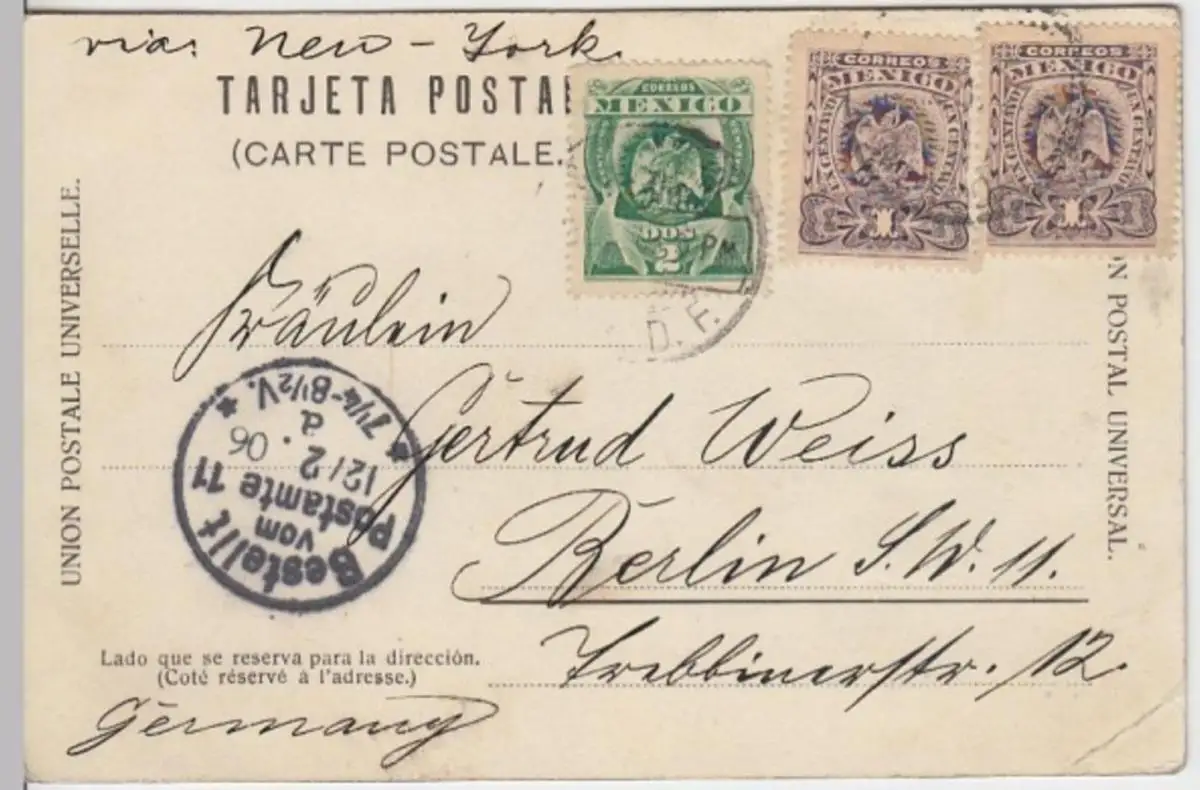 via: New-York.
TARJETA POSTAL
(CARTE POSTALE.
CORREOS
MEXICO
DOS
2
CORREOS
MEXICO
UN CENTAVO UN CENTAVO
1
CORREOS
MEXICO
UN CENTAVO UN CENTAVO
1
PM
D. F.
UNION POSTALE UNIVERSELLE.
ON POSTAL UNIVERSAL.
Fräulein
Gertrud Weiss
Berlin S.W. 11.
Trebbinerstr. 12.
Bestellt
vom
Postamte 11
12/2. 06
a
7 1/4-8 1/2 V.
Lado que se reserva para la dirección.
(Coté réservé à l'adresse.)
Germany